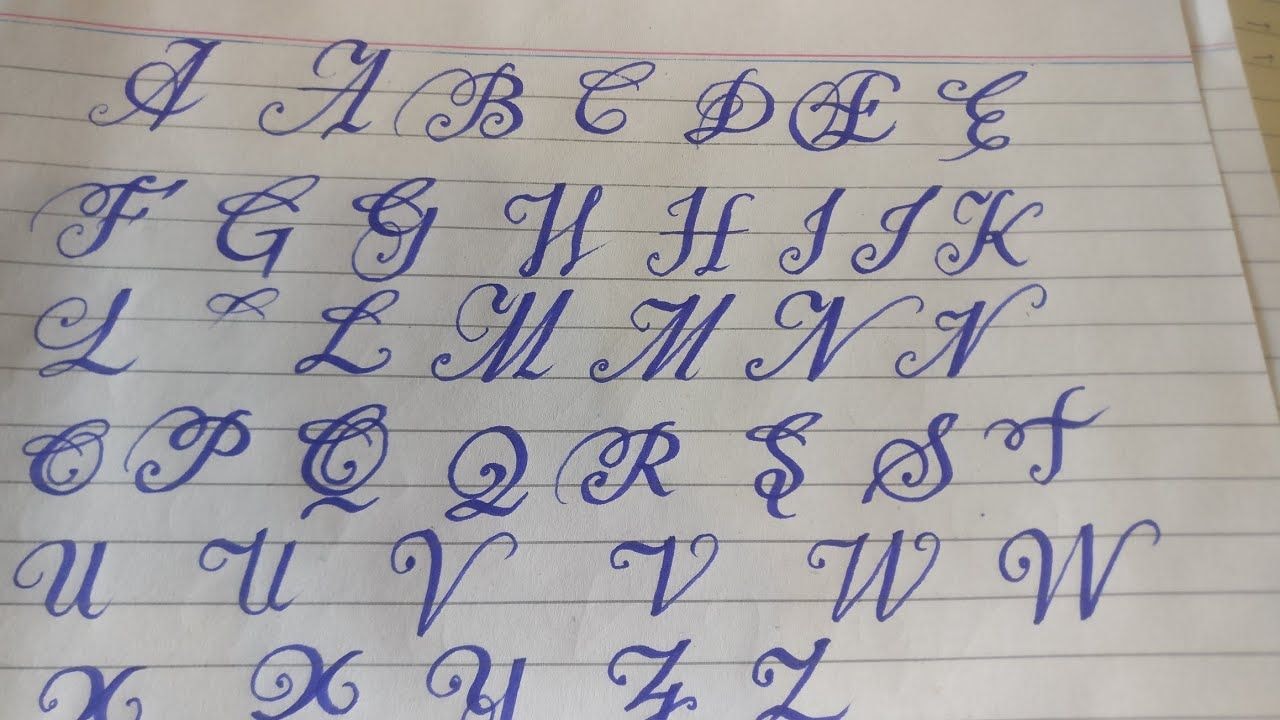 A A B C D E E
F G G H H I J K
L L M M N N
O P Q Q R S S T
U U V V W W
X X Y Z Z